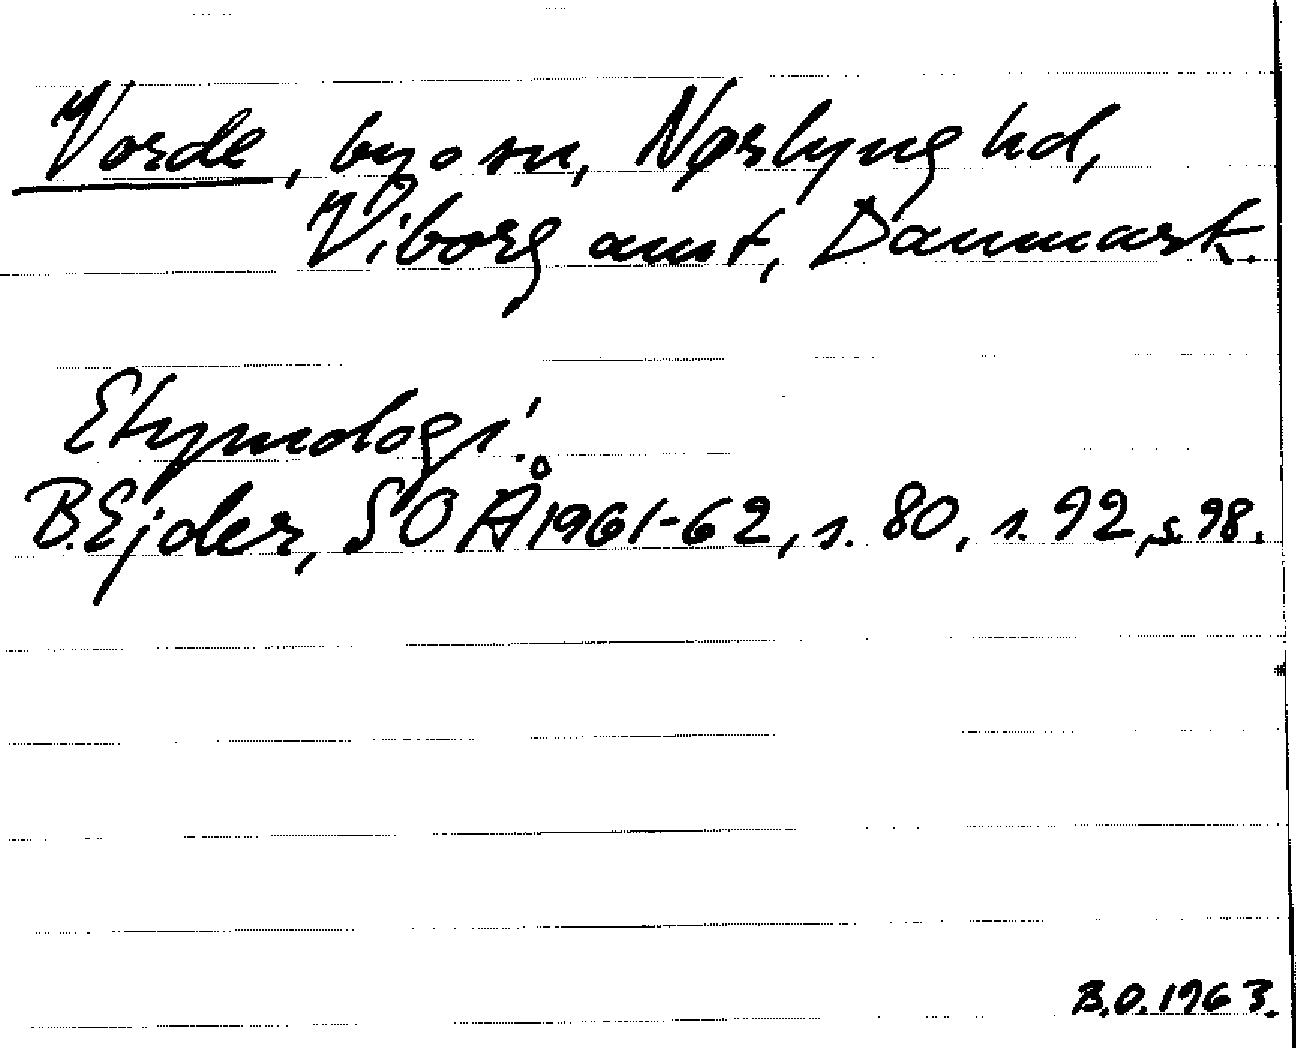 Vorde, by o sn, Nørlyng hd,
Viborg amt, Danmark.
Etymologi:
B. Ejder, SOÅ 1961-62, s. 80, s. 92, s. 98.
B.O. 1963.